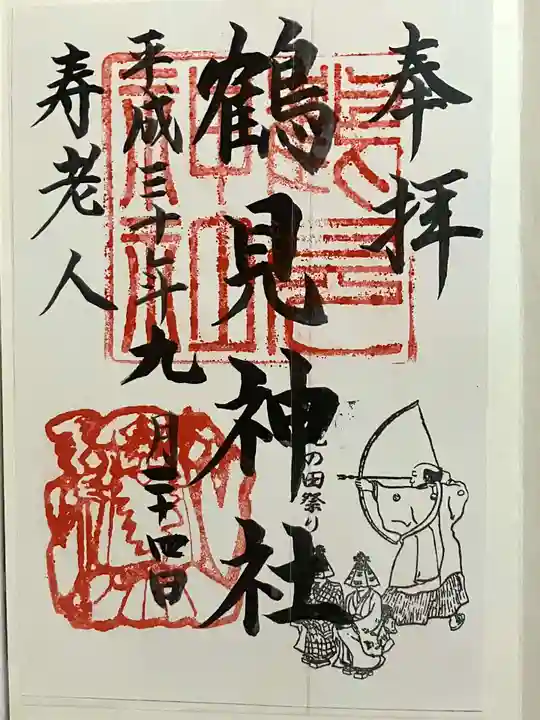 奉拝
鶴見神社
平成三十年九月二十四日
寿老人
の田祭り